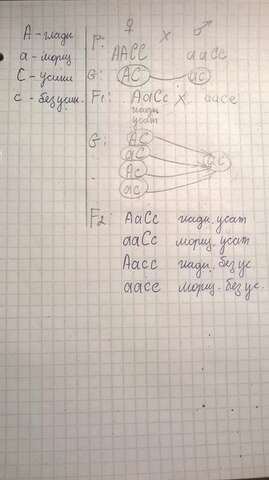 А - гладк
а - морщ
С - усики
с - без усик.
♀ ♂
P: AACC x aacc
G: AC ac
F1: AaCc x aacc
гладк
усат
G: AC
aC ac
Ac
ac
F2: AaCc гладк. усат
aaCc морщ. усат
Aacc гладк. без ус
aacc морщ. без ус.